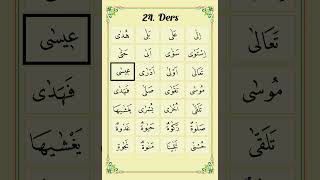 24. Ders
هُدًى بَلٰى عَلٰى اِلٰى
حَتّٰى اَبٰى سَوّٰى اِسْتَوٰى
عِيسٰى اَدْرٰى اَوْلٰى تَعَالٰى
فَهَدٰى صَلّٰى تَقْوٰى مُوسٰى
يَغْشٰيهَا بُشْرٰى اُخْرٰى تَلَقّٰى
غَدٰوةٌ حَيٰوةٌ زَكٰوةٌ صَلٰوةٌ
نَجٰوةٌ مَنٰوةٌ حُسْنٰى
عِيسٰى
فَهَدٰى
يَغْشٰيهَا
تَعَالٰى
مُوسٰى
تَلَقّٰى